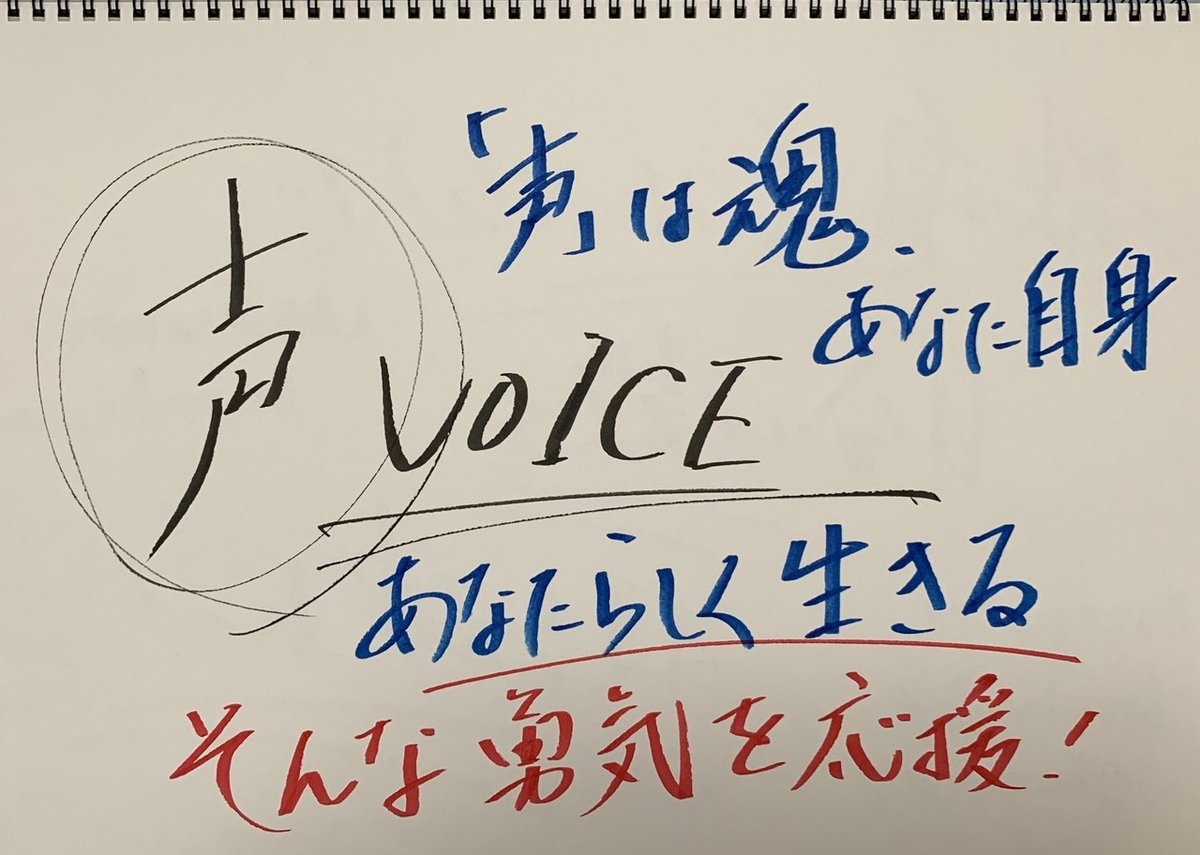 声
VOICE
「声」は魂.
あなた自身
あなたらしく生きる
そんな勇気を応援!